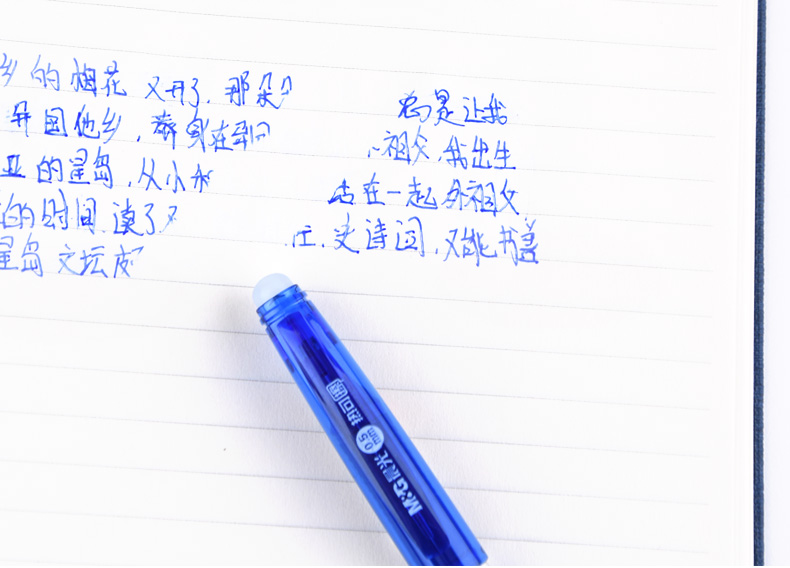 乡的烟花又开了,那朵
异国他乡,
的是让我
祖父,我出生
亚的星岛,从小
在一起,外祖父
的时间,读了
史诗词,又能书善
星岛文坛
热可擦
0.5
mm
M&G晨光